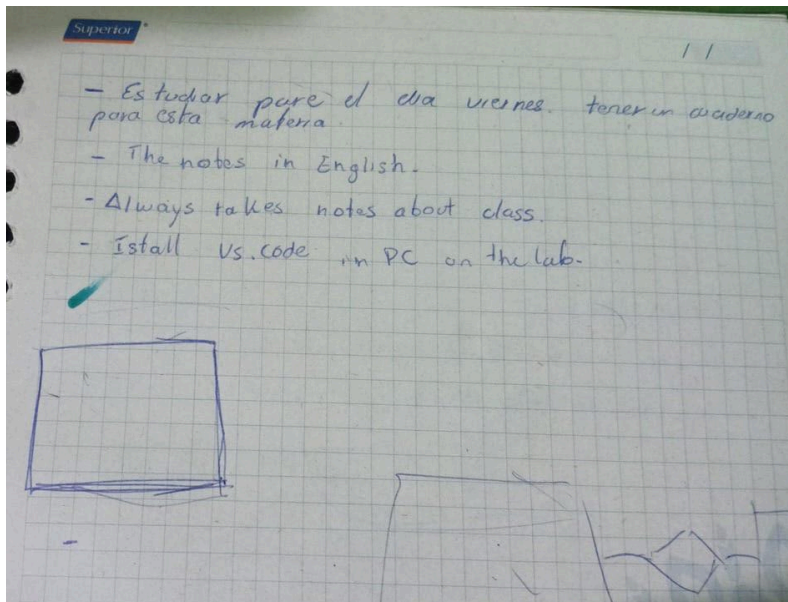 Superior
/ /
- Estudiar pare el dia viernes. tener un cuaderno
para esta materia.
- The notes in English.
- Always takes notes about class.
- Istall Vs.code in PC on the lab.
-